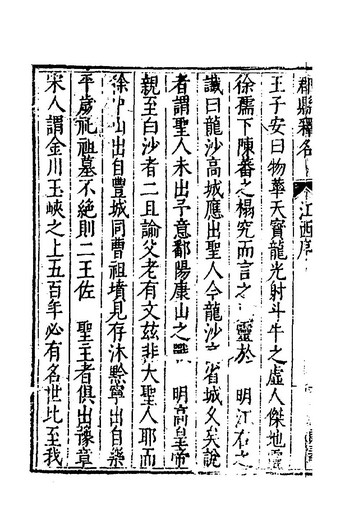 郡縣釋名 江西序
王子安曰物華天寶龍光射斗牛之虛人傑地靈
徐孺下陳蕃之榻究而言之靈於 明江右之
讖曰龍沙高城應出聖人今龍沙 省城久矣說
者謂聖人未出子意鄱陽康山之 明高皇帝
親至白沙者二且諭父老有文茲非大聖人耶而
徐中山出自豐城同曹祖墳見存沐黔寧出自樂
平歲祀祖墓不絕則二王佐 聖王者俱出豫章
宋人謂金川玉峽之上五百年必有名世比至我